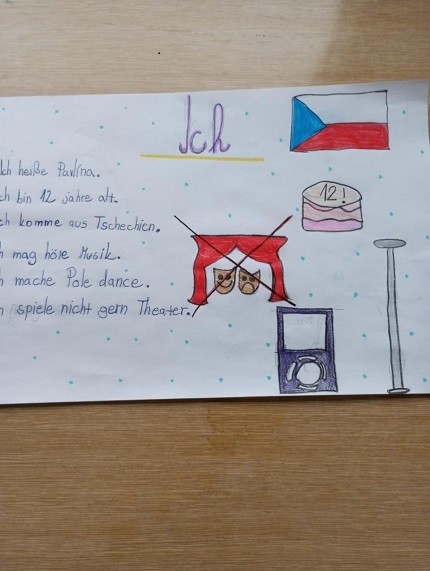 Ich
Ich heiße Pavlína.
ch bin 12 jahre alt.
ch komme aus Tschechien.
h mag höre Musik.
h mache Pole dance.
spiele nicht gern Theater.
12!